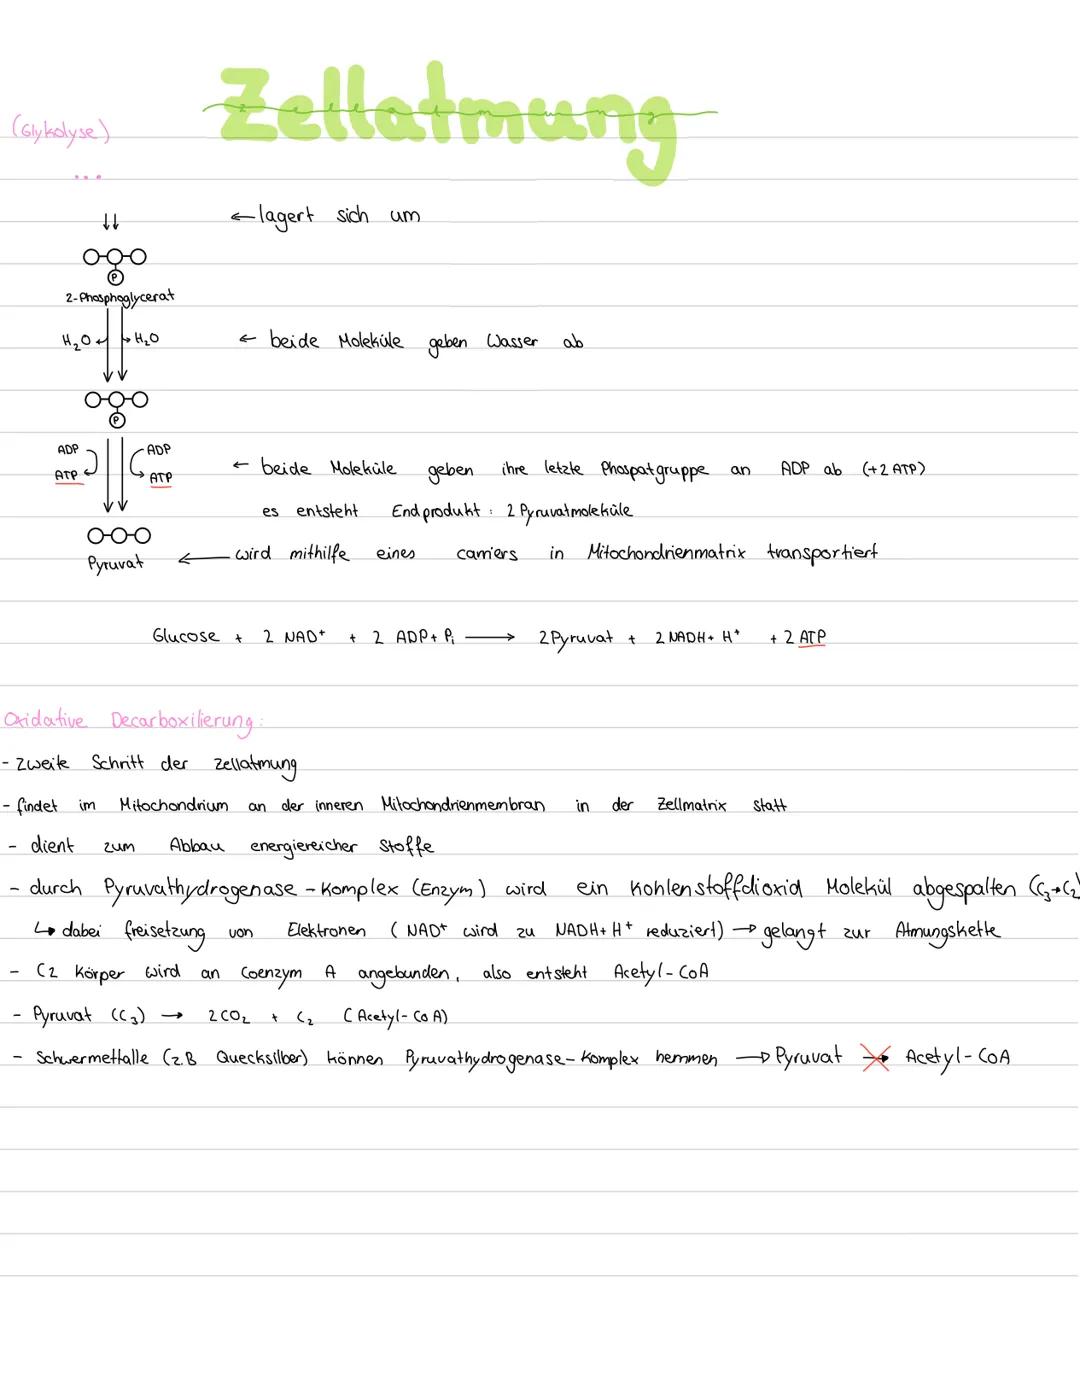 Zellatmung
(Glykolyse)
...
← lagert sich um
P
2-Phosphoglycerat
H₂O H₂O ← beide Moleküle geben Wasser ab
P
ADP ADP
ATP ATP ← beide Moleküle geben ihre letzte Phospatgruppe an ADP ab (+2 ATP)
es entsteht Endprodukt: 2 Pyruvatmoleküle
Pyruvat ← wird mithilfe eines carriers in Mitochondrienmatrix transportiert
Glucose + 2 NAD⁺ + 2 ADP+ Pᵢ → 2 Pyruvat + 2 NADH+ H⁺ + 2 ATP
Oxidative Decarboxilierung:
- zweite Schritt der Zellatmung
- findet im Mitochondrium an der inneren Mitochondrienmembran in der Zellmatrix statt
- dient zum Abbau energiereicher Stoffe
- durch Pyruvathydrogenase - Komplex (Enzym) wird ein Kohlenstoffdioxid Molekül abgespalten (C₃→C₂)
↳ dabei freisetzung von Elektronen (NAD⁺ wird zu NADH+ H⁺ reduziert) → gelangt zur Atmungskette
- C2 Körper wird an Coenzym A angebunden, also entsteht Acetyl-CoA
- Pyruvat (C₃) → 2CO₂ + C₂ (Acetyl-CoA)
- Schwermetalle (z.B Quecksilber) können Pyruvathydrogenase-Komplex hemmen → Pyruvat → Acetyl-CoA